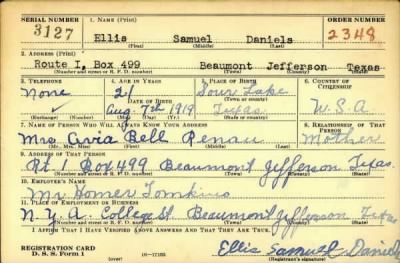 SERIAL NUMBER 1. NAME (Print) ORDER NUMBER
3127 Ellis Samuel Daniels 2348
(First) (Middle) (Last)
2. ADDRESS (Print)
Route I, Box 499 Beaumont Jefferson Texas
(Number and street or R. F. D. number) (Town) (County) (State)
3. TELEPHONE 4. AGE IN YEARS 5. PLACE OF BIRTH 6. COUNTRY OF CITIZENSHIP
None 21 Sour Lake
DATE OF BIRTH (Town or county)
Aug. 7th 1919 Texas U.S.A
(Exchange) (Number) (Mo.) (Day) (Yr.) (State or country)
7. NAME OF PERSON WHO WILL ALWAYS KNOW YOUR ADDRESS 8. RELATIONSHIP OF THAT PERSON
Mrs Bell Mother
(Mr., Mrs., Miss) (First) (Middle) (Last)
9. ADDRESS OF THAT PERSON
Rt 1 Box 499 Beaumont Jefferson Texas
(Number and street or R. F. D. number) (Town) (County) (State)
10. EMPLOYER'S NAME
Mr Homer Tomkins
11. PLACE OF EMPLOYMENT OR BUSINESS
N.Y.A. College St. Beaumont Jefferson Texas
(Number and street or R. F. D. number) (Town) (County) (State)
I AFFIRM THAT I HAVE VERIFIED ABOVE ANSWERS AND THAT THEY ARE TRUE.
REGISTRATION CARD
D. S. S. Form 1 Ellis Samuel Daniels
(Registrant's signature)